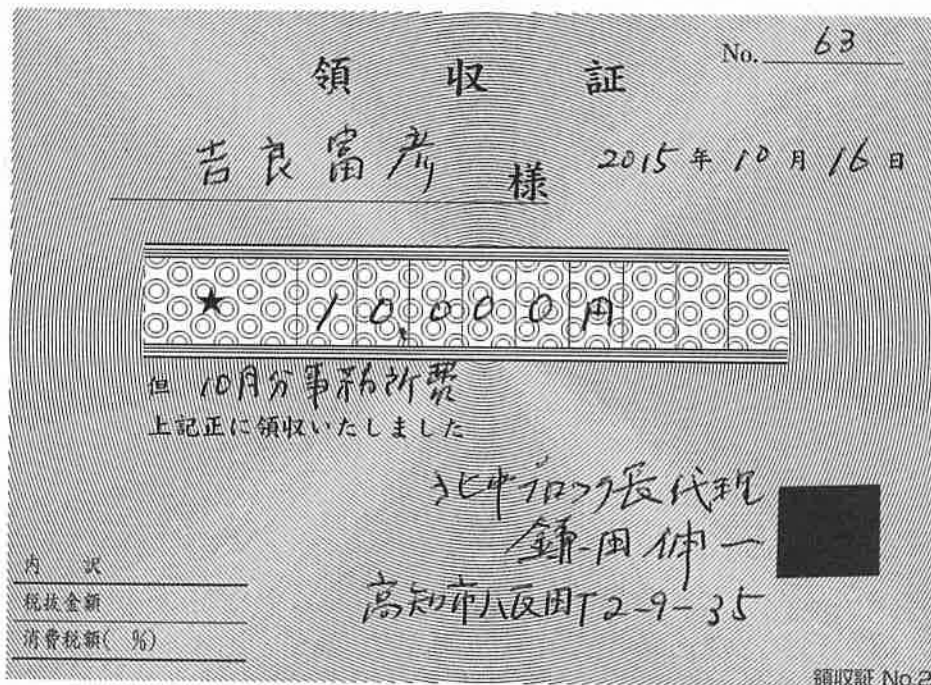 No. 63
領収証
吉良富彦 様 2015年10月16日
★ 10,000円
但 10月分事務所費
上記正に領収いたしました
北中ブロック長代理
鎌田伸一
高知市八反田丁2-9-35
内訳
税抜金額
消費税額( %)
領収証 No.2